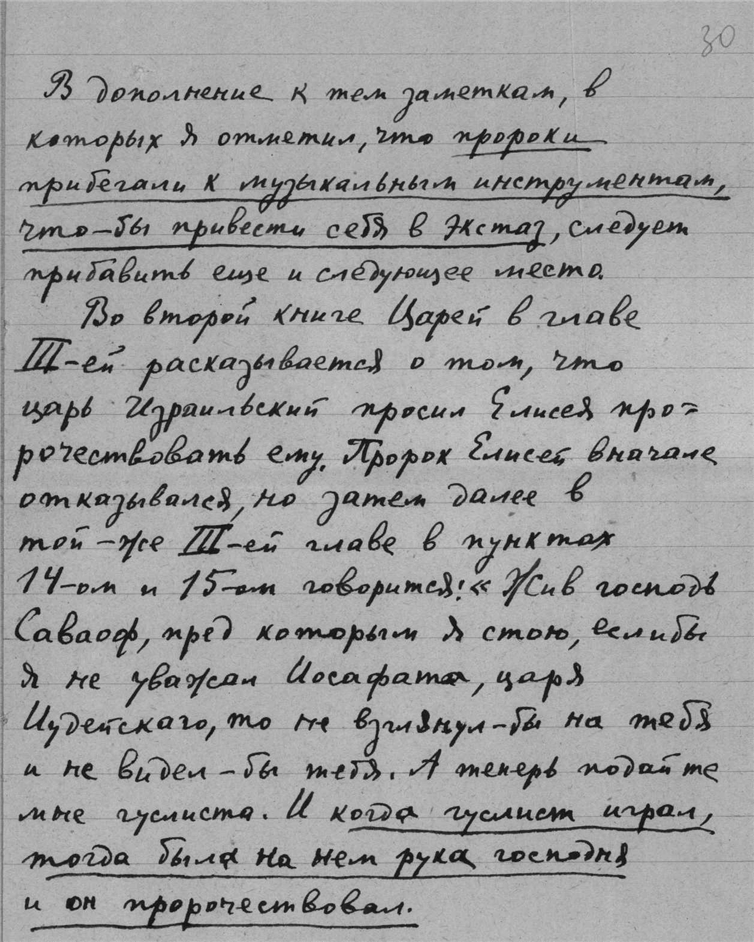 30
В дополнение к тем заметкам, в
которых я отметил, что пророки
прибегали к музыкальным инструментам,
что-бы привести себя в экстаз, следует
прибавить еще и следующее место.
Во второй книге Царей в главе
III-ей расказывается о том, что
царь Израильский просил Елисея про=
рочествовать ему. Пророк Елисей вначале
отказывался, но затем далее в
той-же III-ей главе в пунктах
14-ом и 15-ом говорится: « Жив господь
Саваоф, пред которым я стою, еслибы
я не уважал Иосафата, царя
Иудейскаго, то не взглянул-бы на тебя
и не видел-бы тебя. А теперь подайте
мне гуслиста. И когда гуслист играл,
тогда была на нем рука господня
и он пророчествовал.